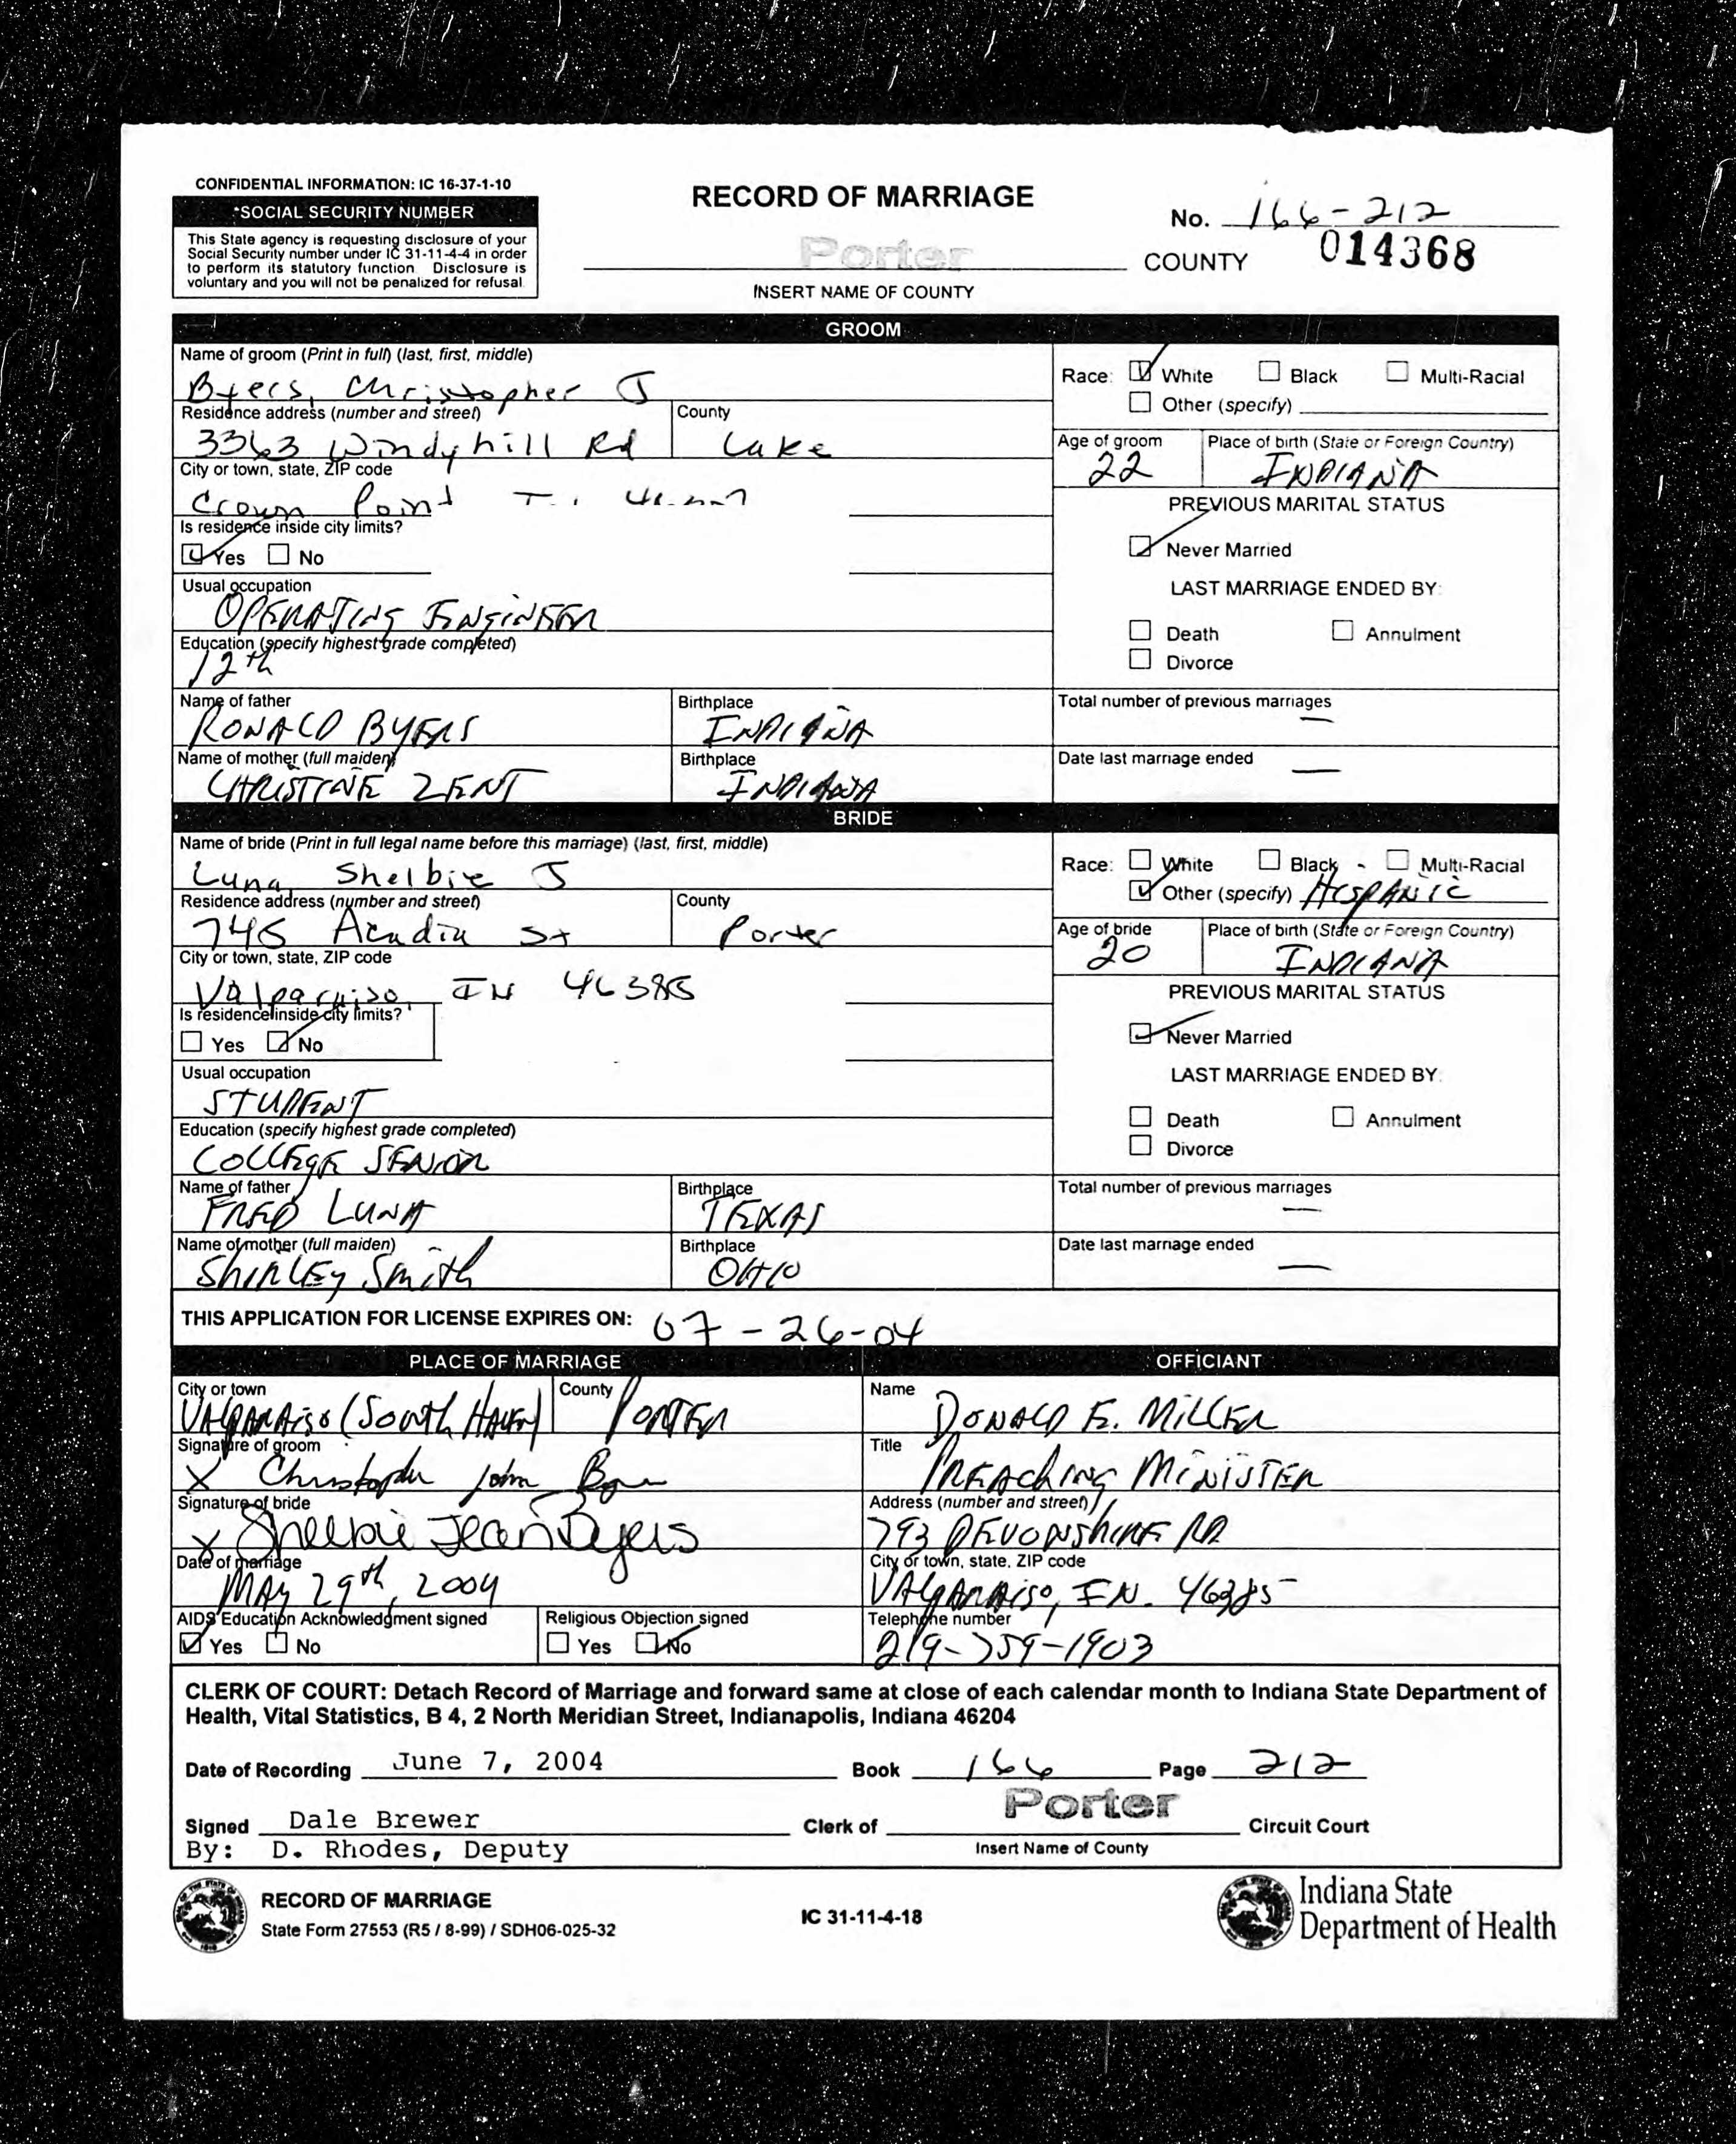 CONFIDENTIAL INFORMATION: IC 16-37-1-10
*SOCIAL SECURITY NUMBER
This State agency is requesting disclosure of your
Social Security number under IC 31-11-4-4 in order
to perform its statutory function. Disclosure is
voluntary and you will not be penalized for refusal.
RECORD OF MARRIAGE
No. 166-212
Porter COUNTY 014368
INSERT NAME OF COUNTY
GROOM
Name of groom (Print in full) (last, first, middle)
Byers, Christopher J
Race: White Black Multi-Racial
Other (specify)
Residence address (number and street) County
3363 Windyhill Rd Lake
Age of groom Place of birth (State or Foreign Country)
22 INDIANA
City or town, state, ZIP code
Crown Point
PREVIOUS MARITAL STATUS
Is residence inside city limits?
Yes No
Never Married
Usual occupation
OPERATING ENGINEER
LAST MARRIAGE ENDED BY:
Death Annulment
Divorce
Education (specify highest grade completed)
12th
Name of father Birthplace Total number of previous marriages
RONALD BYERS INDIANA —
Name of mother (full maiden) Birthplace Date last marriage ended
CHRISTINE ZENT INDIANA —
BRIDE
Name of bride (Print in full legal name before this marriage) (last, first, middle)
Luna, Shelbie J
Race: White Black - Multi-Racial
Other (specify) HISPANIC
Residence address (number and street) County
745 Acadia St Porter
Age of bride Place of birth (State or Foreign Country)
20 INDIANA
City or town, state, ZIP code
Valparaiso, IN 46385
PREVIOUS MARITAL STATUS
Is residence inside city limits?
Yes No
Never Married
Usual occupation
STUDENT
LAST MARRIAGE ENDED BY:
Death Annulment
Divorce
Education (specify highest grade completed)
COLLEGE SENIOR
Name of father Birthplace Total number of previous marriages
FRED LUNA TEXAS —
Name of mother (full maiden) Birthplace Date last marriage ended
SHIRLEY Smith OHIO —
THIS APPLICATION FOR LICENSE EXPIRES ON: 07-26-04
PLACE OF MARRIAGE OFFICIANT
City or town County Name
VALPARAISO (SOUTH HAVEN) PORTER DONALD E. MILLER
Signature of groom Title
X Christopher John PREAChING MINISTER
Signature of bride Address (number and street)
X Shelbie Jean Byers 793 DEVONShIRE RD
Date of marriage City or town, state, ZIP code
MAY 29th, 2004 VALPARAISO, IN. 46385
AIDS Education Acknowledgment signed Religious Objection signed Telephone number
Yes No Yes No 219-759-1903
CLERK OF COURT: Detach Record of Marriage and forward same at close of each calendar month to Indiana State Department of
Health, Vital Statistics, B 4, 2 North Meridian Street, Indianapolis, Indiana 46204
Date of Recording June 7, 2004 Book 166 Page 212
Signed Dale Brewer Clerk of Porter Circuit Court
By: D. Rhodes, Deputy Insert Name of County
RECORD OF MARRIAGE
State Form 27553 (R5 / 8-99) / SDH06-025-32
IC 31-11-4-18
Indiana State
Department of Health